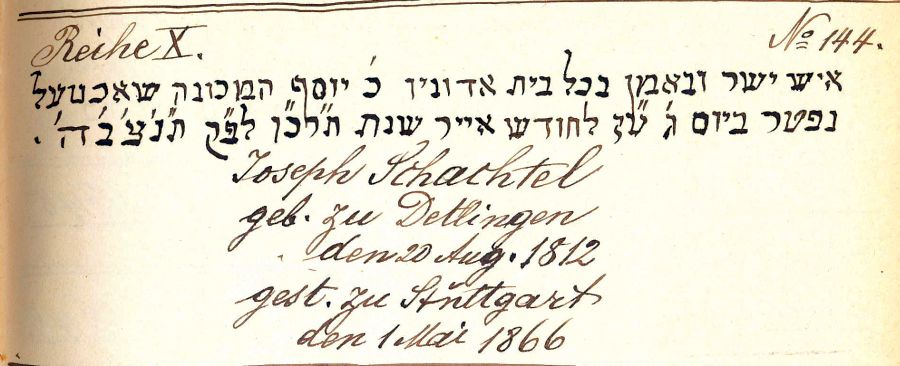 Reihe X. № 144.
איש ישר ונאמן בכל בית אדוניו כ' יוסף המכונה שאכטעל
נפטר ביום ג' ט"ז לחודש אייר שנת תרכ"ו לפ"ק ת'נ'צ'ב'ה'.
Joseph Schachtel
geb. zu Detlingen
den 20 Aug. 1812
gest. zu Stuttgart
den 1 Mai 1866